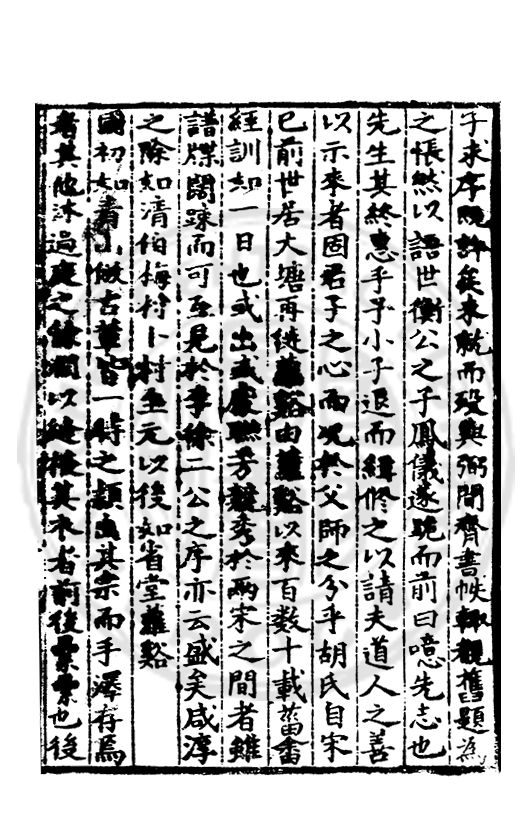 子求序既許從未就而歿與弼閒齊書帙輒觀舊題為
之悵然以語世衡公之子鳳儀遂跪而前曰噫先志也
先生其終惠乎予小子退而緝修之以請夫道人之善
以示來者固君子之心而況於父師之分乎胡氏自宋
已前世居大塘再徙蘿谿由蘿谿以來百数十載菑畬
經訓如一日也或出或處聯芳競秀於兩宋之間者雖
譜牒闊踈而可互見於李徐二公之序亦云盛矣咸淳
之際如清伯梅村卜村至元以後如省堂蘿谿
國初如看山做古輩皆一時之顯出其宗而手澤存焉
者其他沐過庭之餘潤以維其衣者前後纍纍也後